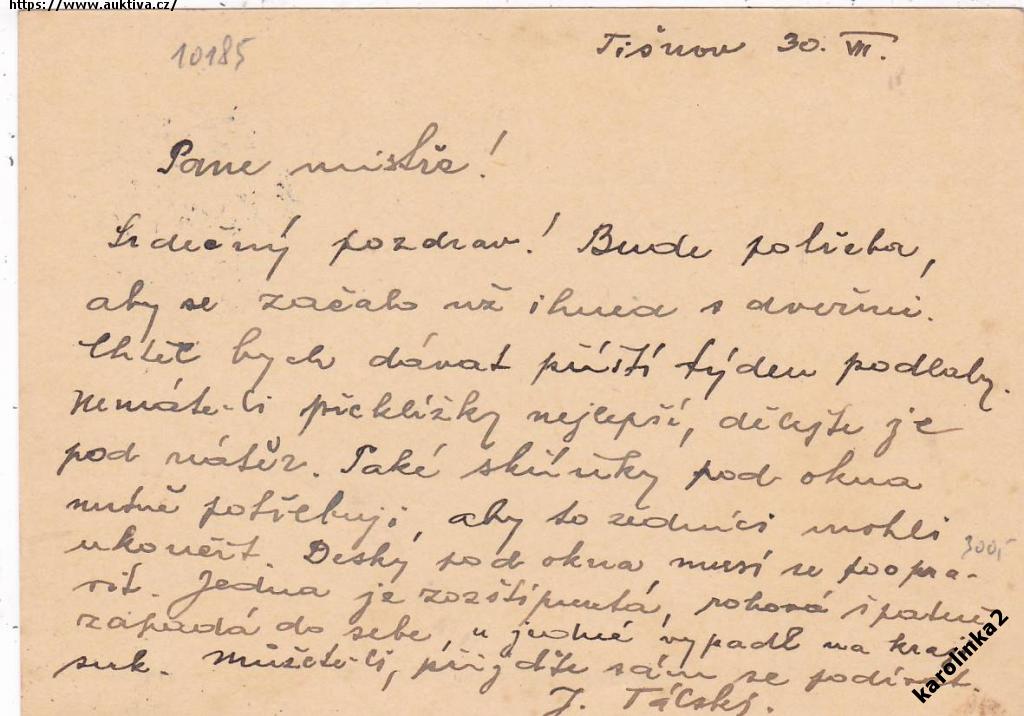 https://www.auktiva.cz/
10185
Tišnov 30. VII.
Pane mistře!
Srdečný pozdrav! Bude potřeba,
aby se začalo už ihned s dveřmi.
Chtěl bych dávat příští týden podlahy.
Nemáte-li překližky nejlepší, dělejte je
pod nátěr. Také skřínky pod okna
nutně potřebuji, aby to zedníci mohli
ukončit. Desky pod okna musí se poopra-
300,-
vit. Jedna je rozštípnutá, rohová špatně
zapadá do sebe, u jedné vypadl na kraji
suk. Můžete-li, přijďte sám se podívat.
J. Tálský.
karolinka2